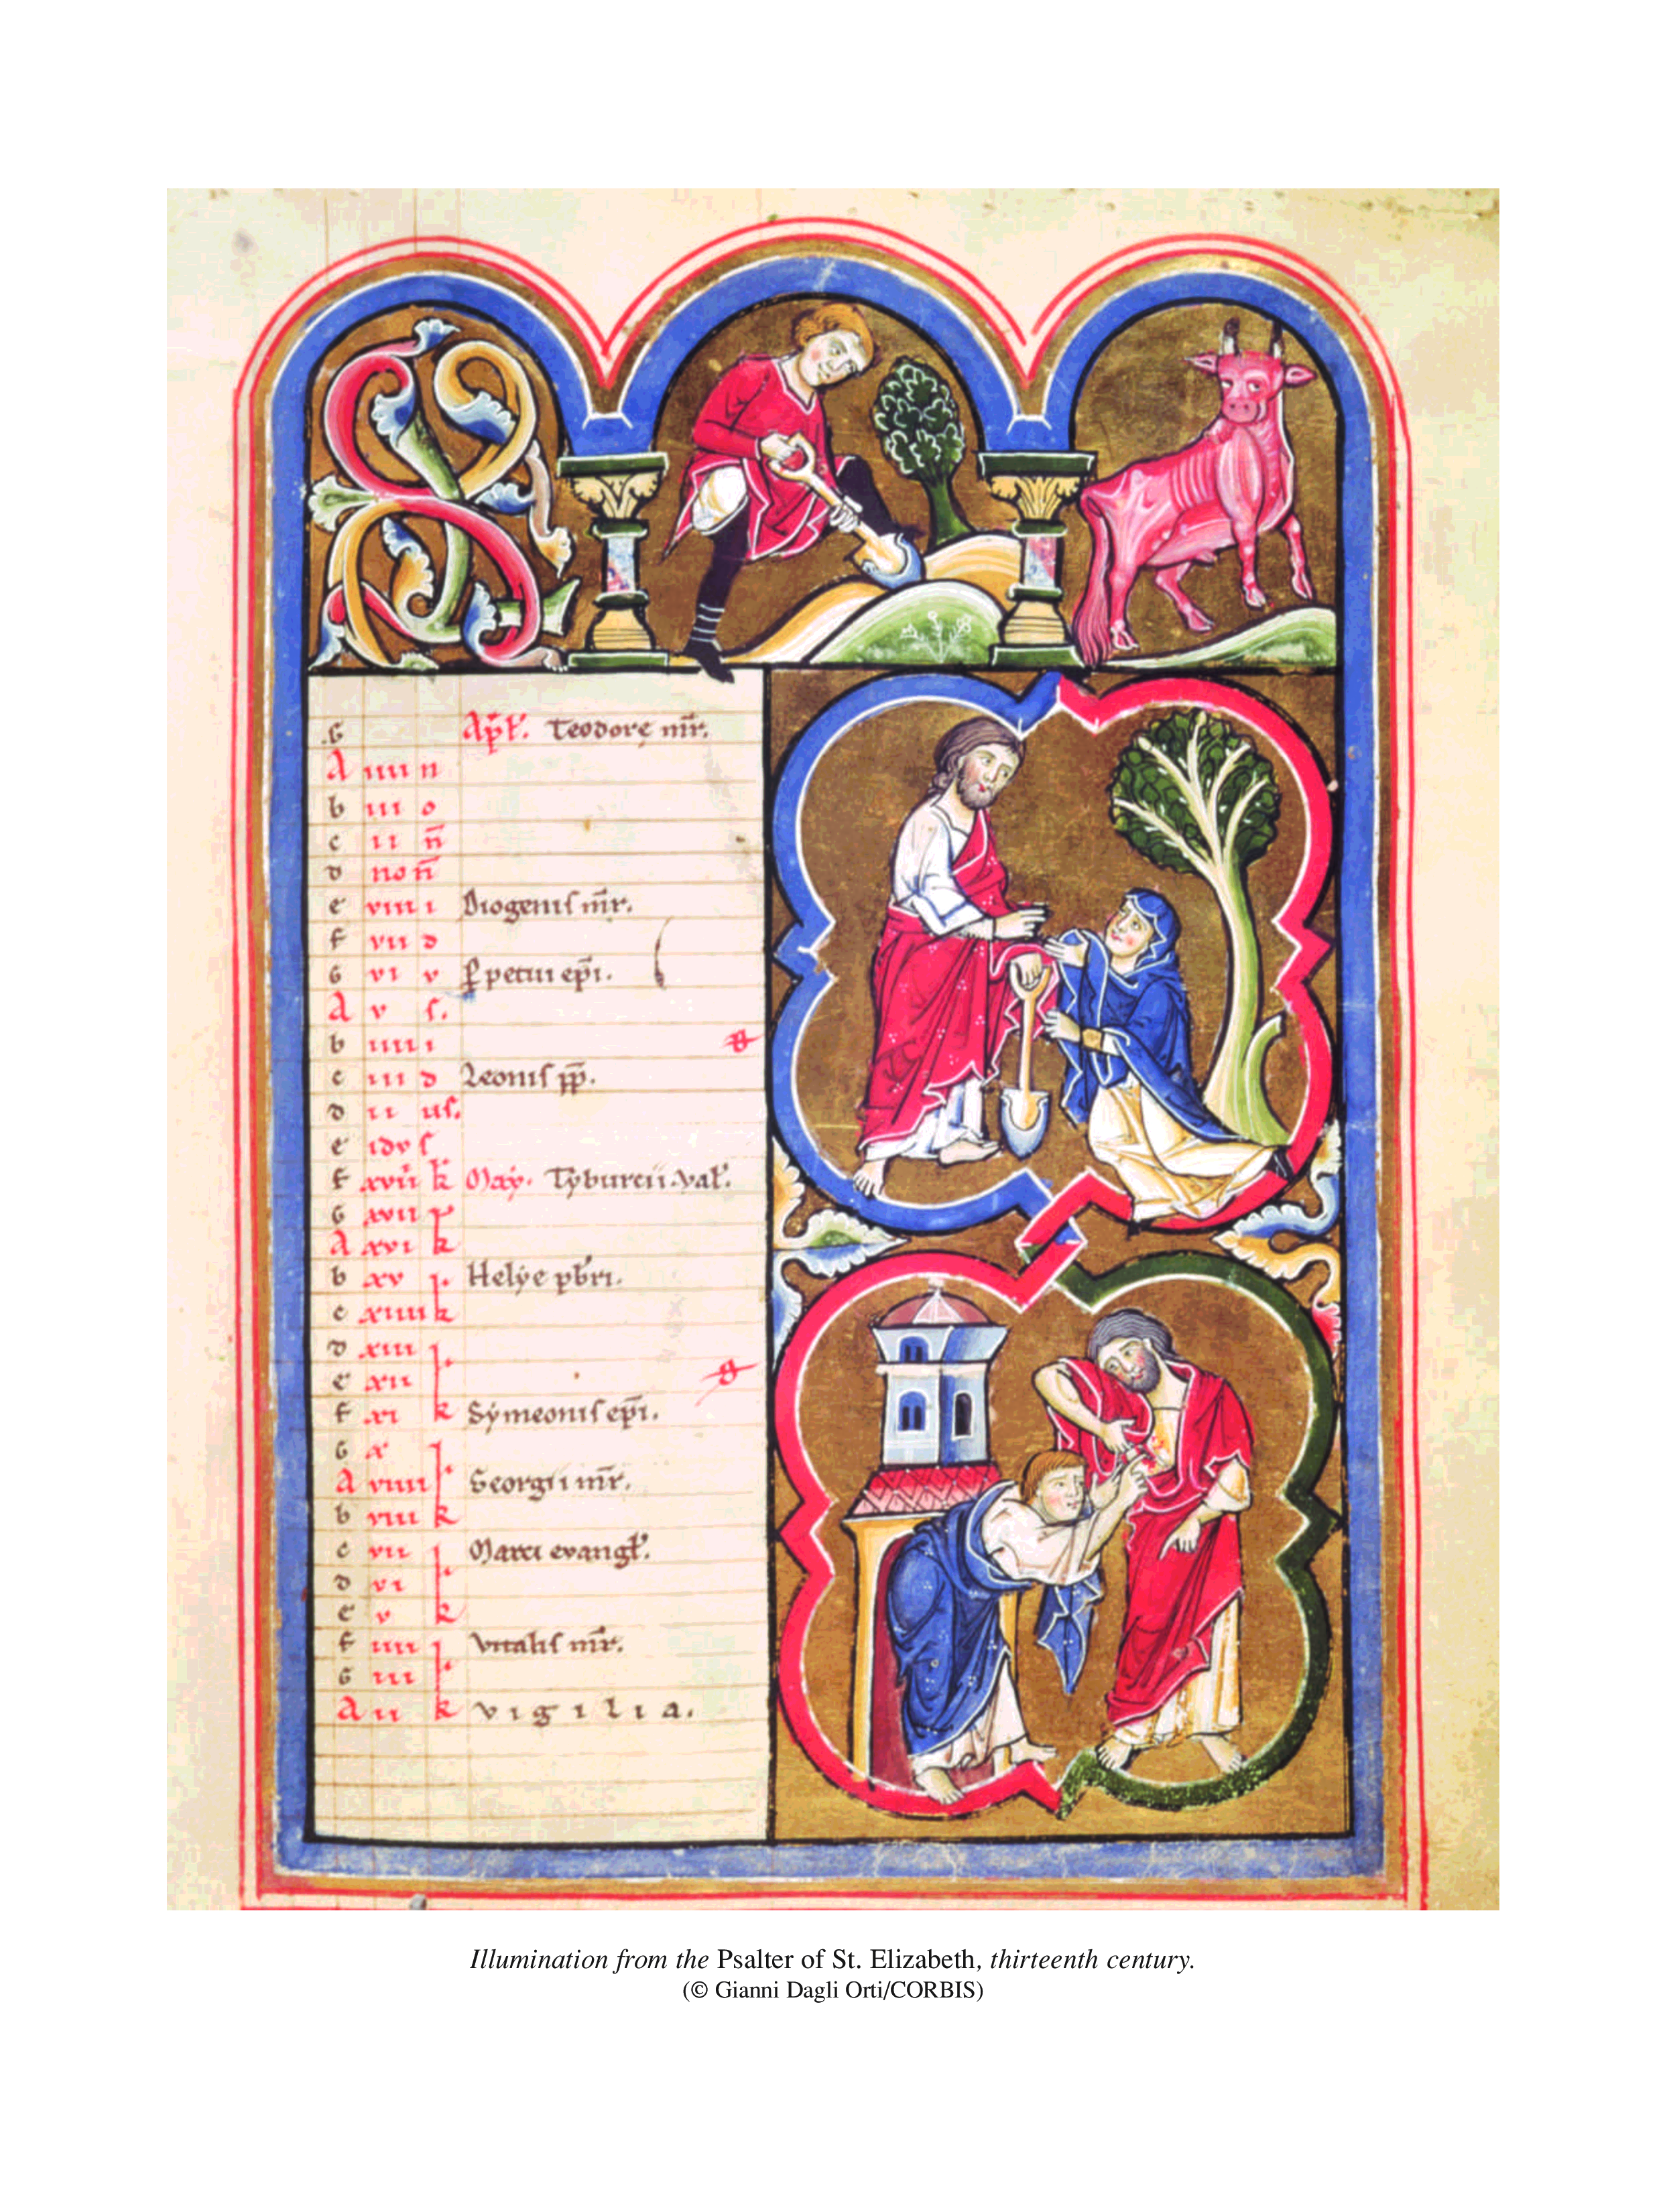 G Apł. Teodorę mr̄.
A iiii n
b iii o
c ii n̄
d non̄
e viii i Diogenis mr̄.
f vii d
G vi v ꝑpetui ep̄i.
A v s.
b iiii i
c iii d Leonis pp̄.
d ii us.
e idus
f xviii k May. Tyburcii. Val'.
G xvii k
A xvi k
b xv k Helye pb̄ri.
c xiiii k
d xiii
e xii
f xi k Symeonis ep̄i.
G x
A viiii Georgii mr̄.
b viii k
c vii Marci evangł.
d vi
e v k
f iiii Vitalis mr̄.
G iii
A ii k vigilia.
Illumination from the Psalter of St. Elizabeth, thirteenth century.
(© Gianni Dagli Orti/CORBIS)